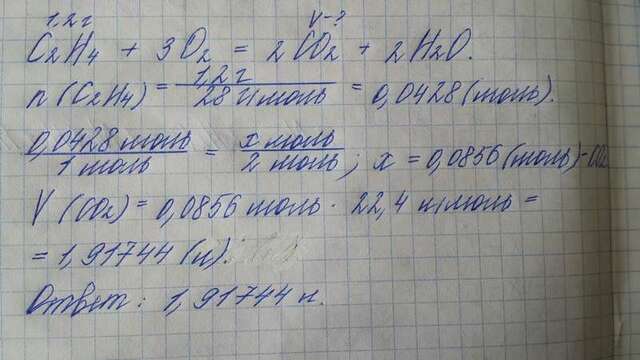 1,2 г V-?
C2H4 + 3O2 = 2CO2 + 2H2O.
n (C2H4) = 1,2 г / 28 г/моль = 0,0428 (моль).
0,0428 моль / 1 моль = x моль / 2 моль ; x = 0,0856 (моль) - CO2
V (CO2) = 0,0856 моль · 22,4 л/моль =
= 1,91744 (л).
Ответ: 1,91744 л.